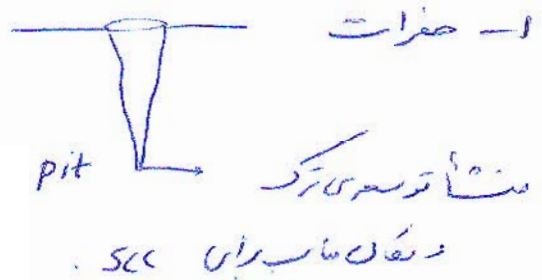 ۱- حفرات
pit
منشأ توسعه‌ی ترک
و مکان مناسب برای SCC .